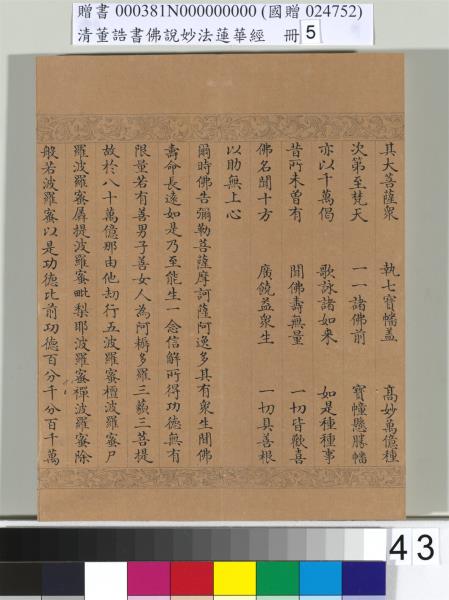 贈書 000381N000000000 (國贈 024752)
清董誥書佛說妙法蓮華經 冊 5
其大菩薩眾 執七寶幡盖 高妙萬億種
次第至梵天 一一諸佛前 寶幢懸勝幡
亦以千萬偈 歌詠諸如来 如是種種事
昔所未曽有 聞佛壽無量 一切皆歡喜
佛名聞十方 廣饒益衆生 一切具善根
以助無上心
爾時佛告彌勒菩薩摩訶薩阿逸多其有衆生聞佛
壽命長遠如是乃至能生一念信解所得功德無有
限量若有善男子善女人為阿耨多羅三藐三菩提
故於八十萬億那由他刧行五波羅蜜檀波羅蜜尸
羅波羅蜜羼提波羅蜜毗梨耶波羅蜜禪波羅蜜除
般若波羅蜜以是功德比前功德百分千分百千萬
43